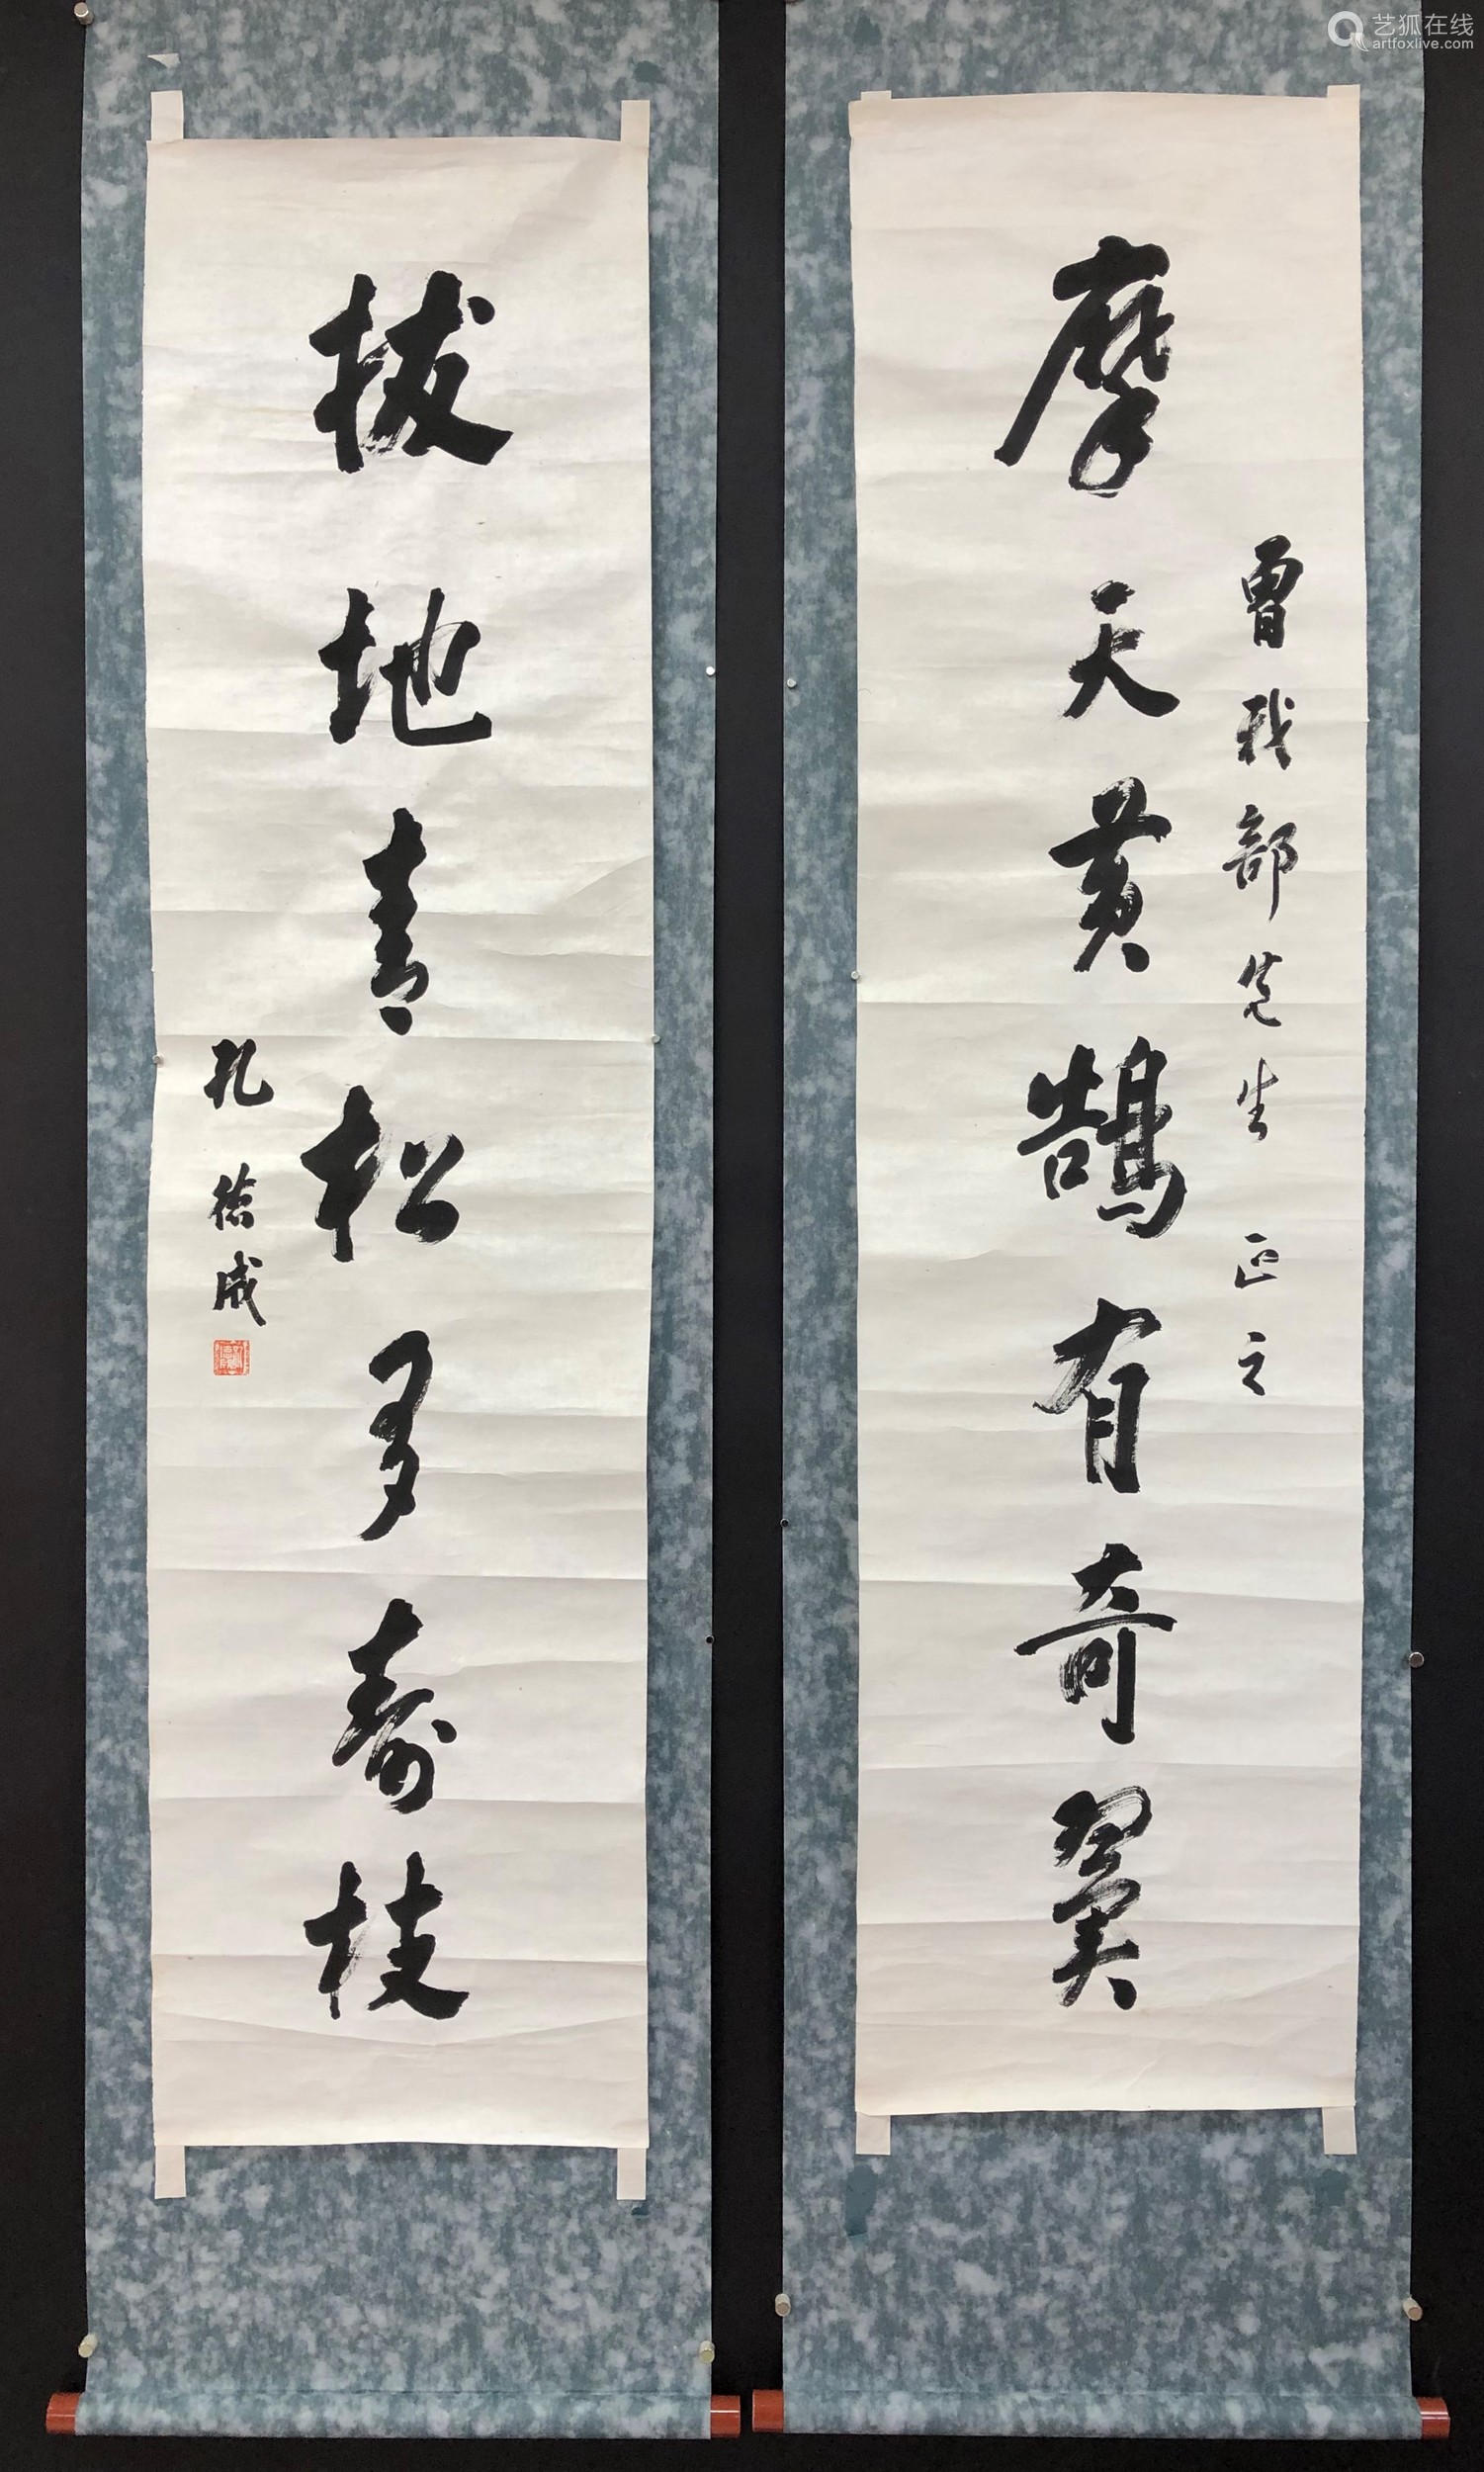 曾我部先生 正之
摩天黄鵠有奇翼
拔地青松多壽枝
孔德成
艺狐在线
artfoxlive.com